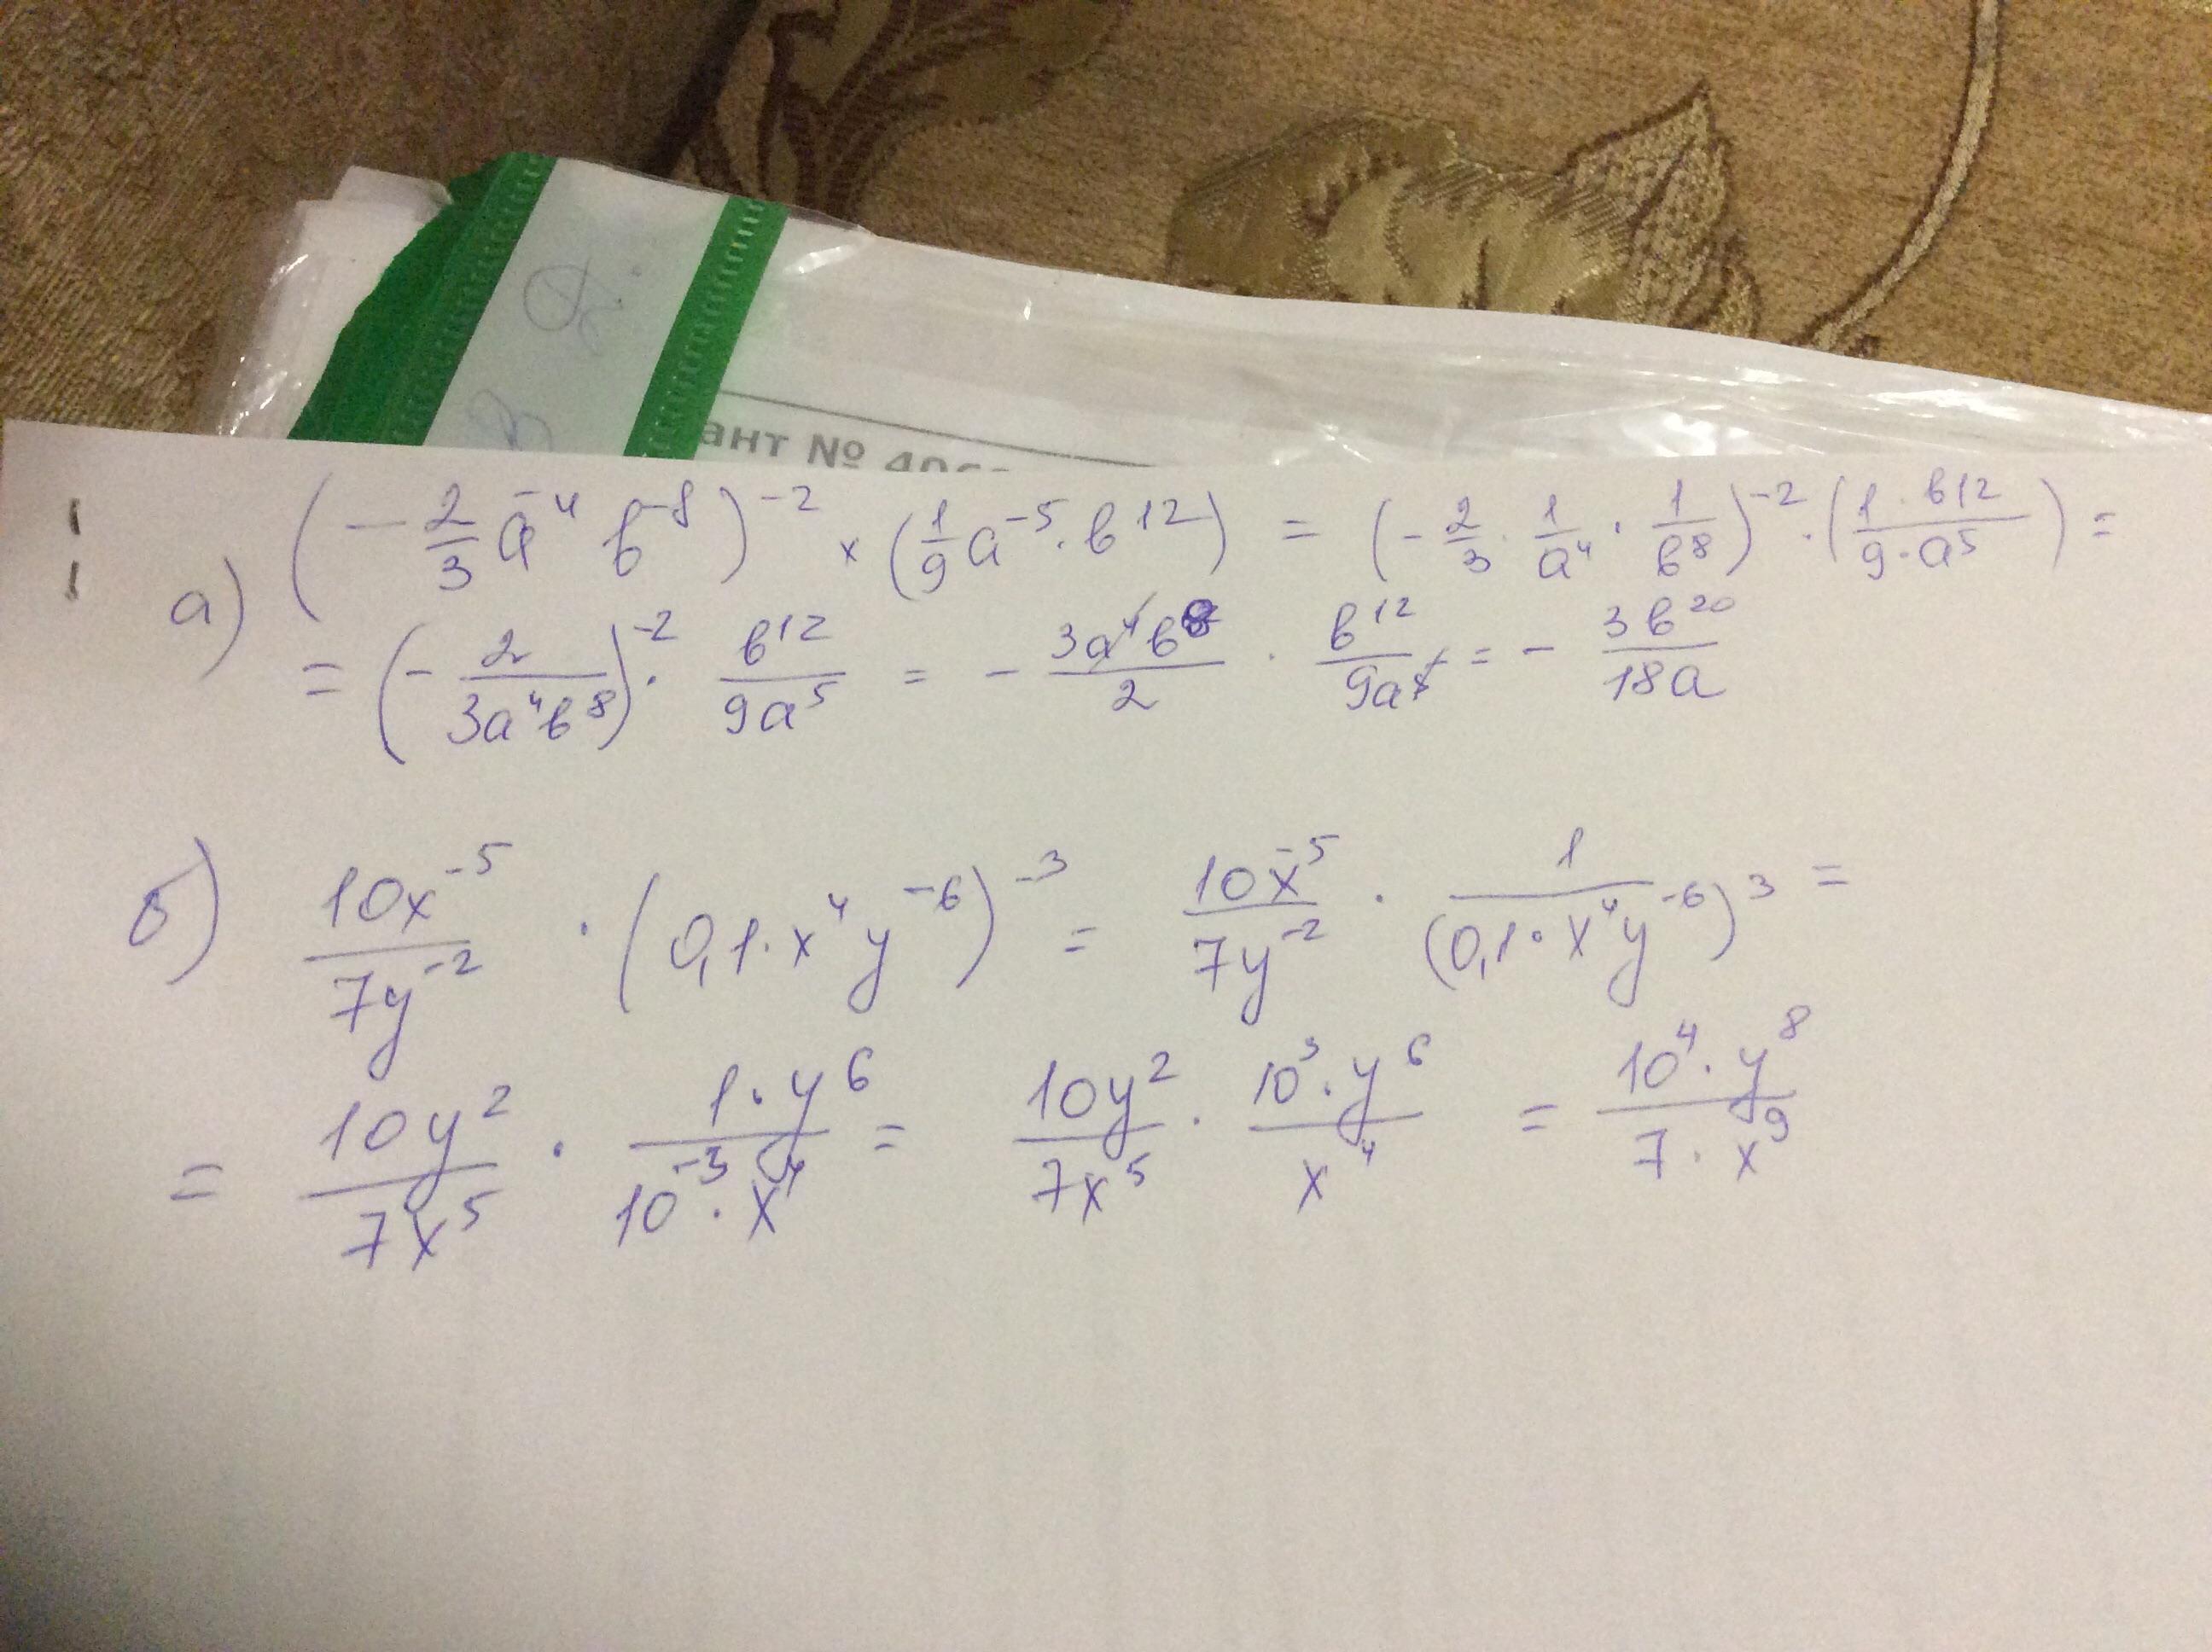 ант №
а) (-2/3 a^-4 b^-8)^-2 × (1/9 a^-5 · b^12) = (-2/3 · 1/a^4 · 1/b^8)^-2 · (1 · b^12 / 9 · a^5) =
= (-2/3a^4b^8)^-2 · b^12/9a^5 = - 3a^4b^8/2 · b^12/9a = - 3b^20/18a
б) 10x^-5/7y^-2 · (0,1 · x^4y^-6)^-3 = 10x^-5/7y^-2 · 1/(0,1 · x^4y^-6)^3 =
= 10y^2/7x^5 · 1 · y^6/10^-3 · x^4 = 10y^2/7x^5 · 10^3 · y^6/x^4 = 10^4 · y^8/7 · x^9